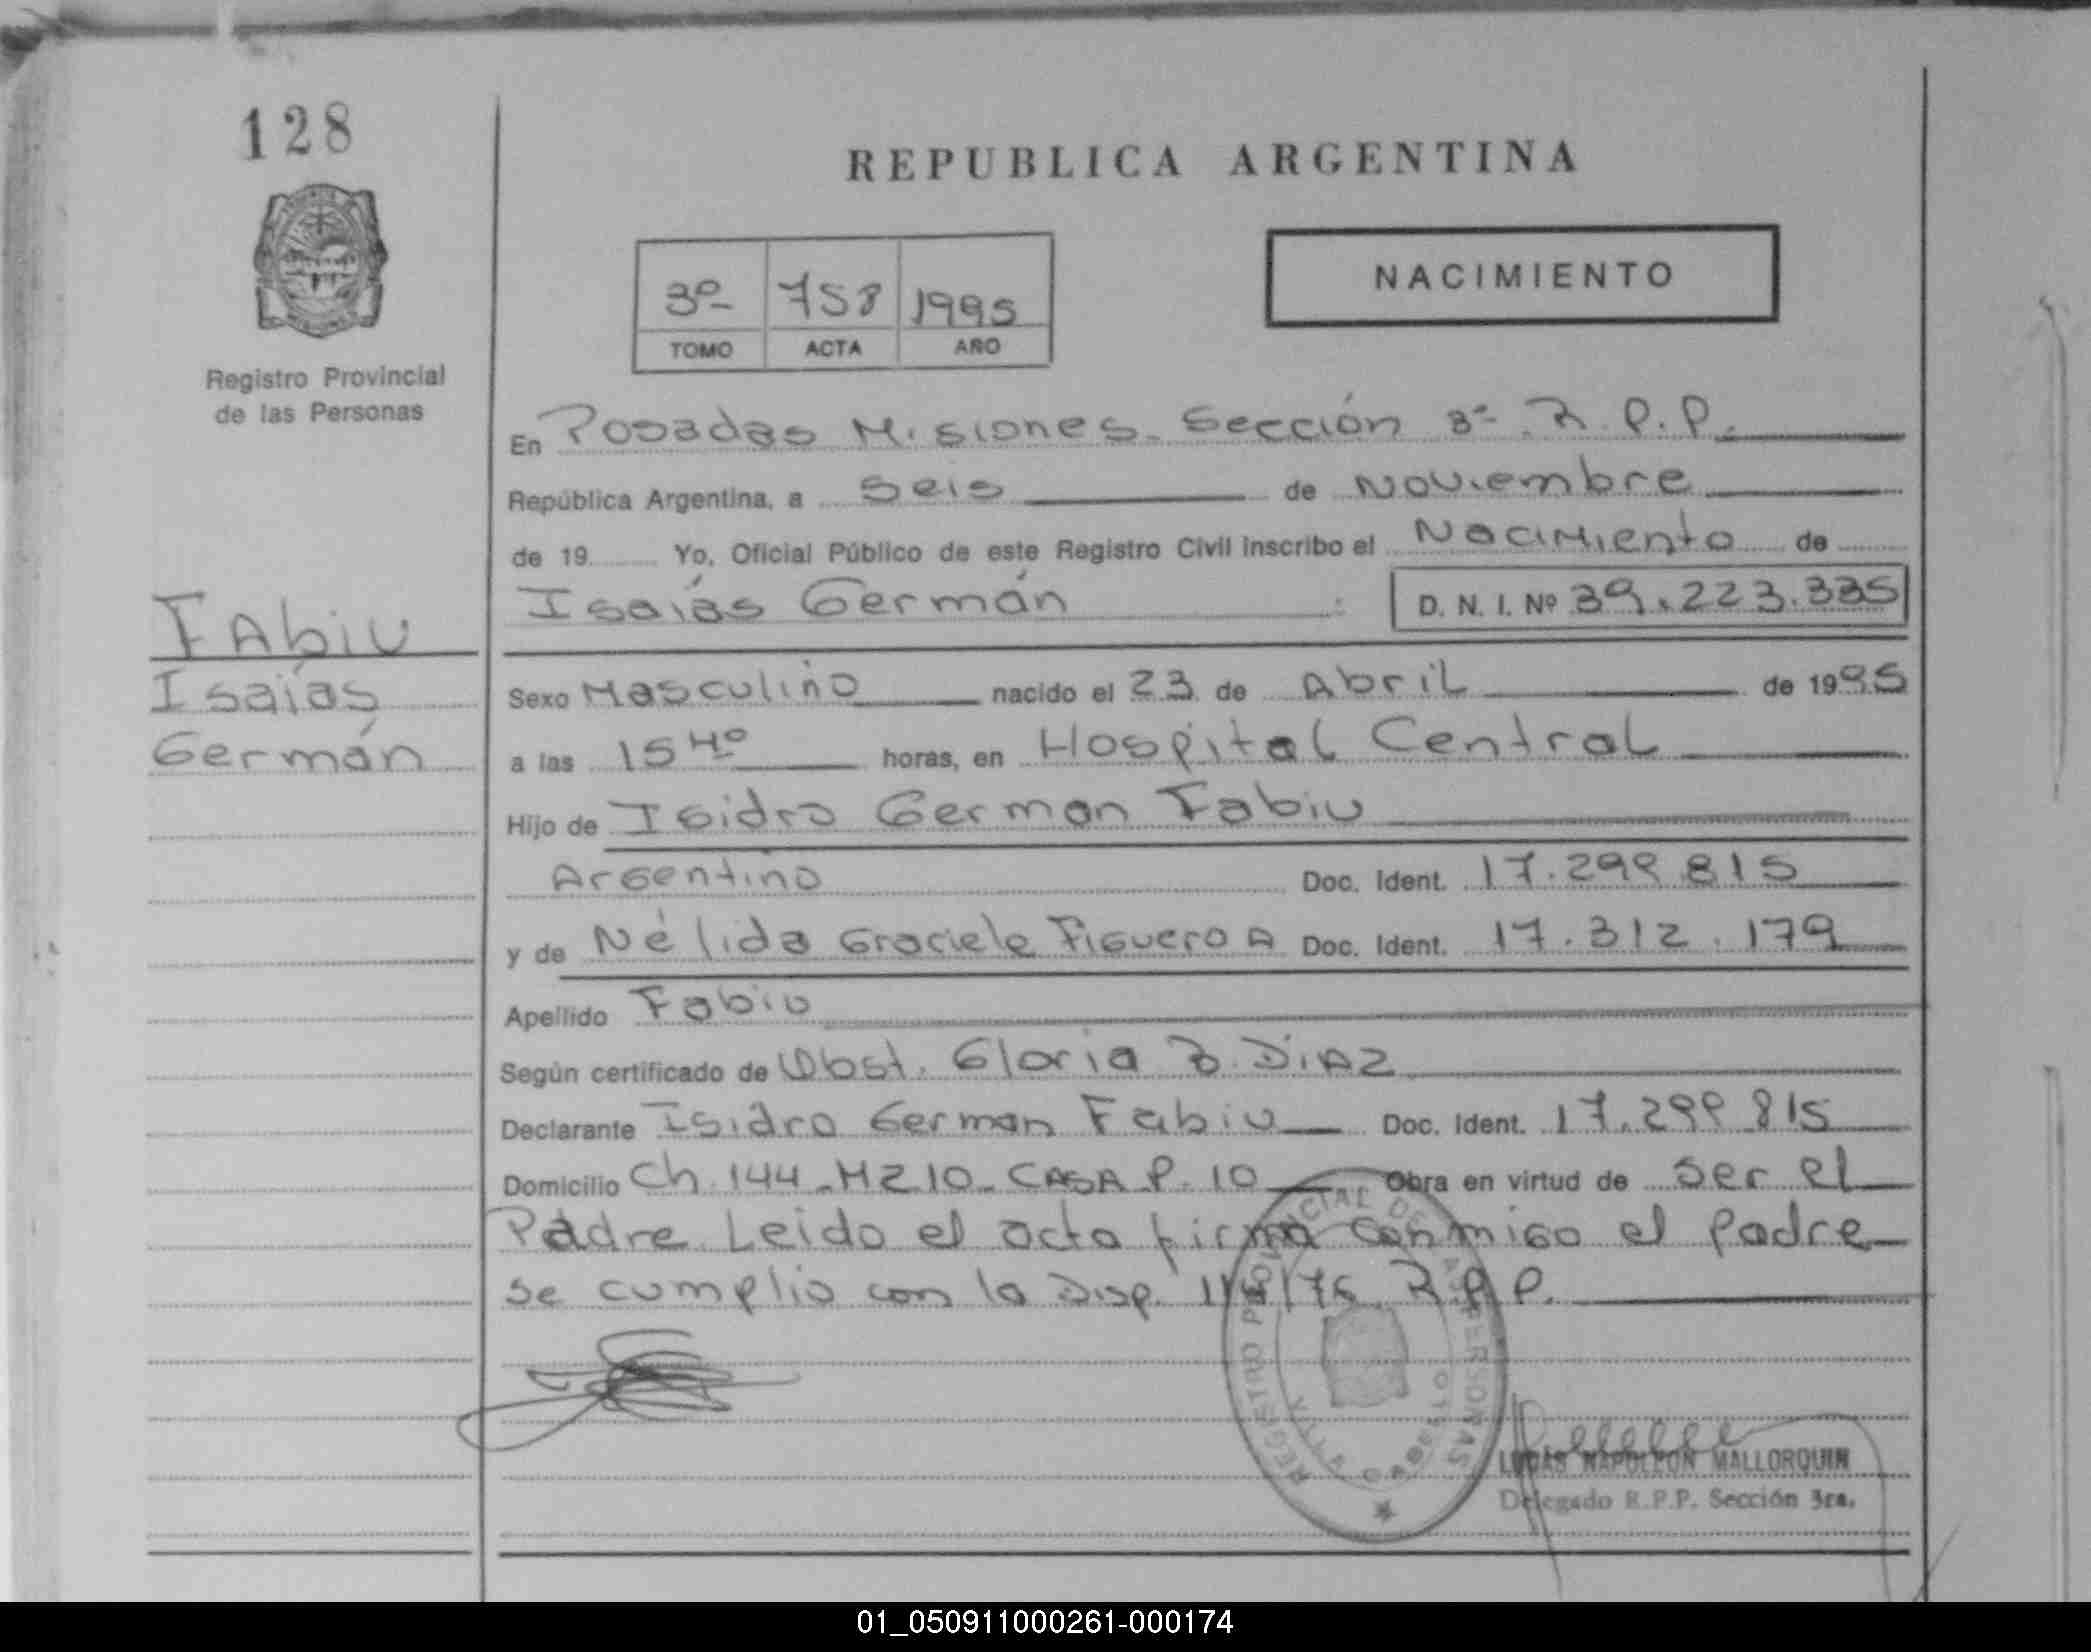 128
REPUBLICA ARGENTINA
3º 758 1995
TOMO ACTA AÑO
NACIMIENTO
Registro Provincial
de las Personas
En Posadas Misiones. Sección 3ª. R.P.P.
República Argentina, a seis de Noviembre
de 19 Yo, Oficial Público de este Registro Civil inscribo el Nacimiento de
Isaías Germán D. N. I. Nº 39.223.335
FAbiu
Isaías
Germán
Sexo Masculino nacido el 23 de Abril de 1995
a las 15 Hº horas, en Hospital Central
Hijo de Isidro German Fabiu
Argentino Doc. Ident. 17.299.815
y de Nélida Graciela Figueroa Doc. Ident. 17.312.179
Apellido Fabiu
Según certificado de Obst. Gloria B. Díaz
Declarante Isidro German Fabiu Doc. Ident. 17.299.815
Domicilio Ch. 144 - MZ 10 - CASA P. 10 Obra en virtud de ser el
Padre. Leido el acta firma conmigo el padre
se cumplio con la Disp. R.P.P.
REGISTRO PROVINCIAL DE LAS PERSONAS
LUCAS NAPOLEON MALLORQUIN
Delegado R.P.P. Sección 3ra.
01_050911000261-000174